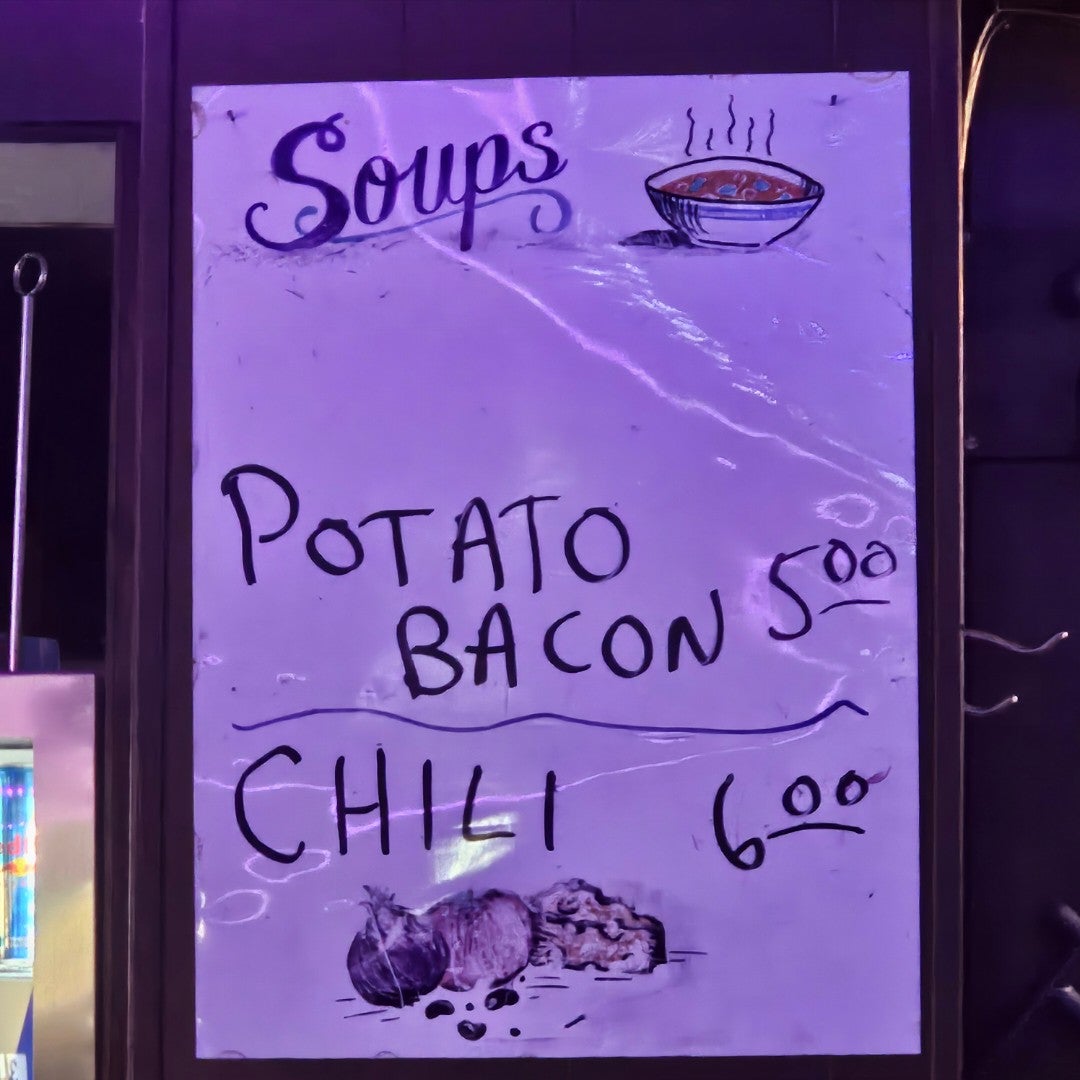 Soups
POTATO
BACON 5.00
CHILI 6.00